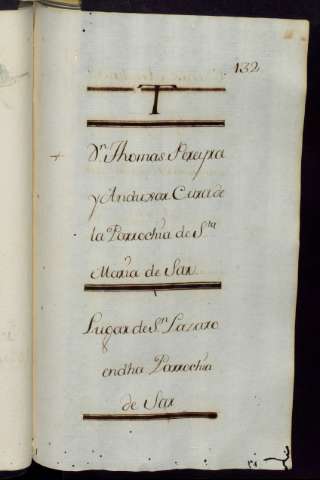 132
T
Dn. Thomas Pereyra
y Anduxar Cura de
la Parrochia de Sta
Maria de Sar
Lugar de Sn. Lazaro
en dha Parrochia
de Sar